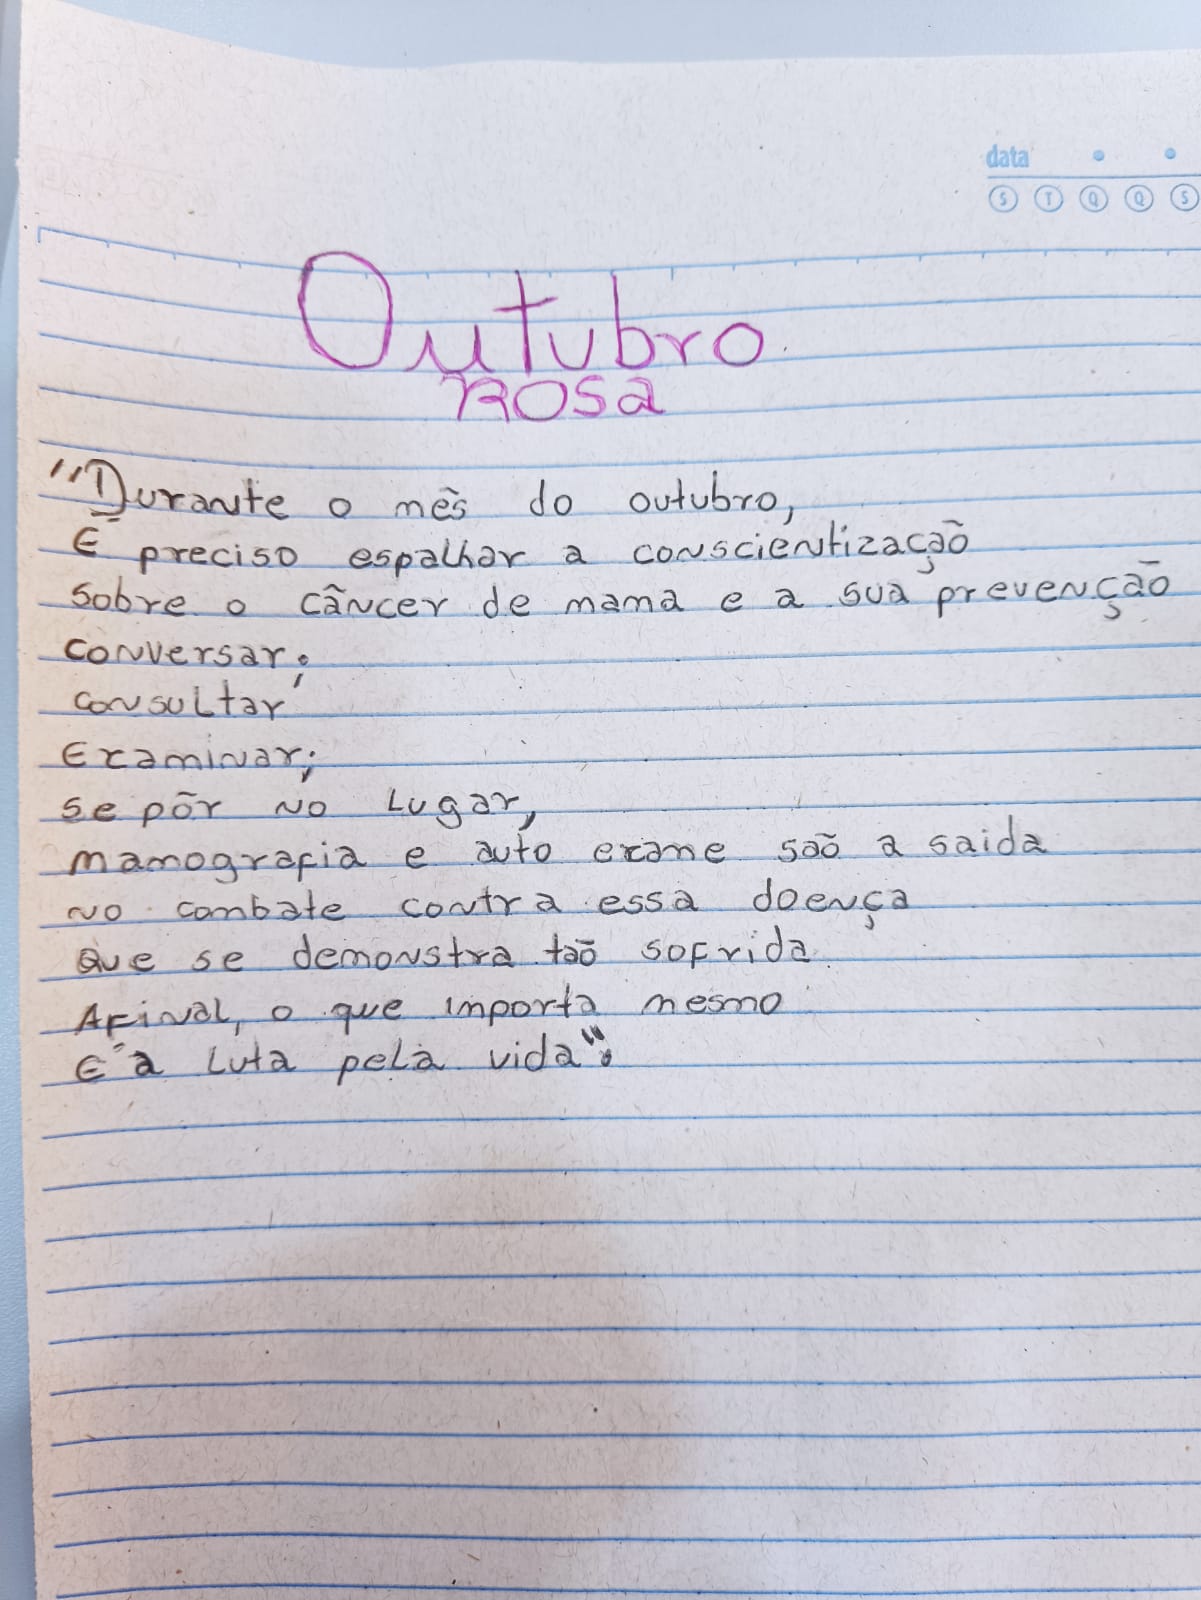 data
S T Q Q S
Outubro
Rosa
"Durante o mês do outubro,
É preciso espalhar a conscientização
Sobre o câncer de mama e a sua prevenção
Conversar;
Consultar
Examinar;
se pôr no Lugar,
mamografia e auto exame são a saida
no combate contra essa doença
Que se demonstra tão sofrida
Afinal, o que importa mesmo
É a Luta pela vida".